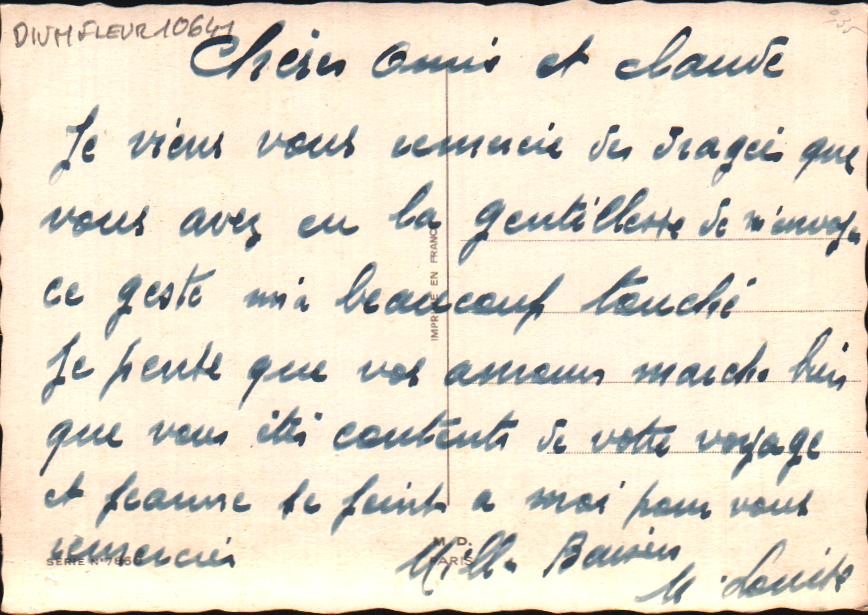 DIVM FLEUR 10641
Chères Amis et claude
Je viens vous remercie des dragées que
vous avez eu la gentillesse de m'envoy
ce geste m'a beaucoup touché
Je pense que vos amours marche bien
que vous êtes contents de votre voyage
et jeanne se joint a moi pour vous
remerciés
Mille Baisers
M. Louise
IMPRIMÉ EN FRANCE
M. D.
PARIS
SERIE N°